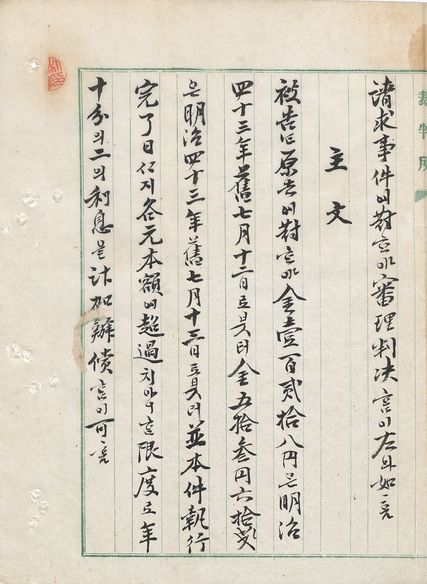 請求事件에對ᄒᆞ야審理判決홈이左와如홈
主文
被告는原告에對ᄒᆞ야金壹百貳拾八円은明治
四十三年舊七月十二日로붓터金五拾参円六拾戔
은明治四十三年舊七月十三日로붓터並本件執行
完了日ᄭᆞ지各元本額에超過치아니ᄒᆞᆫ限度로年
十分의二의利息을計加辨償홈이可홈